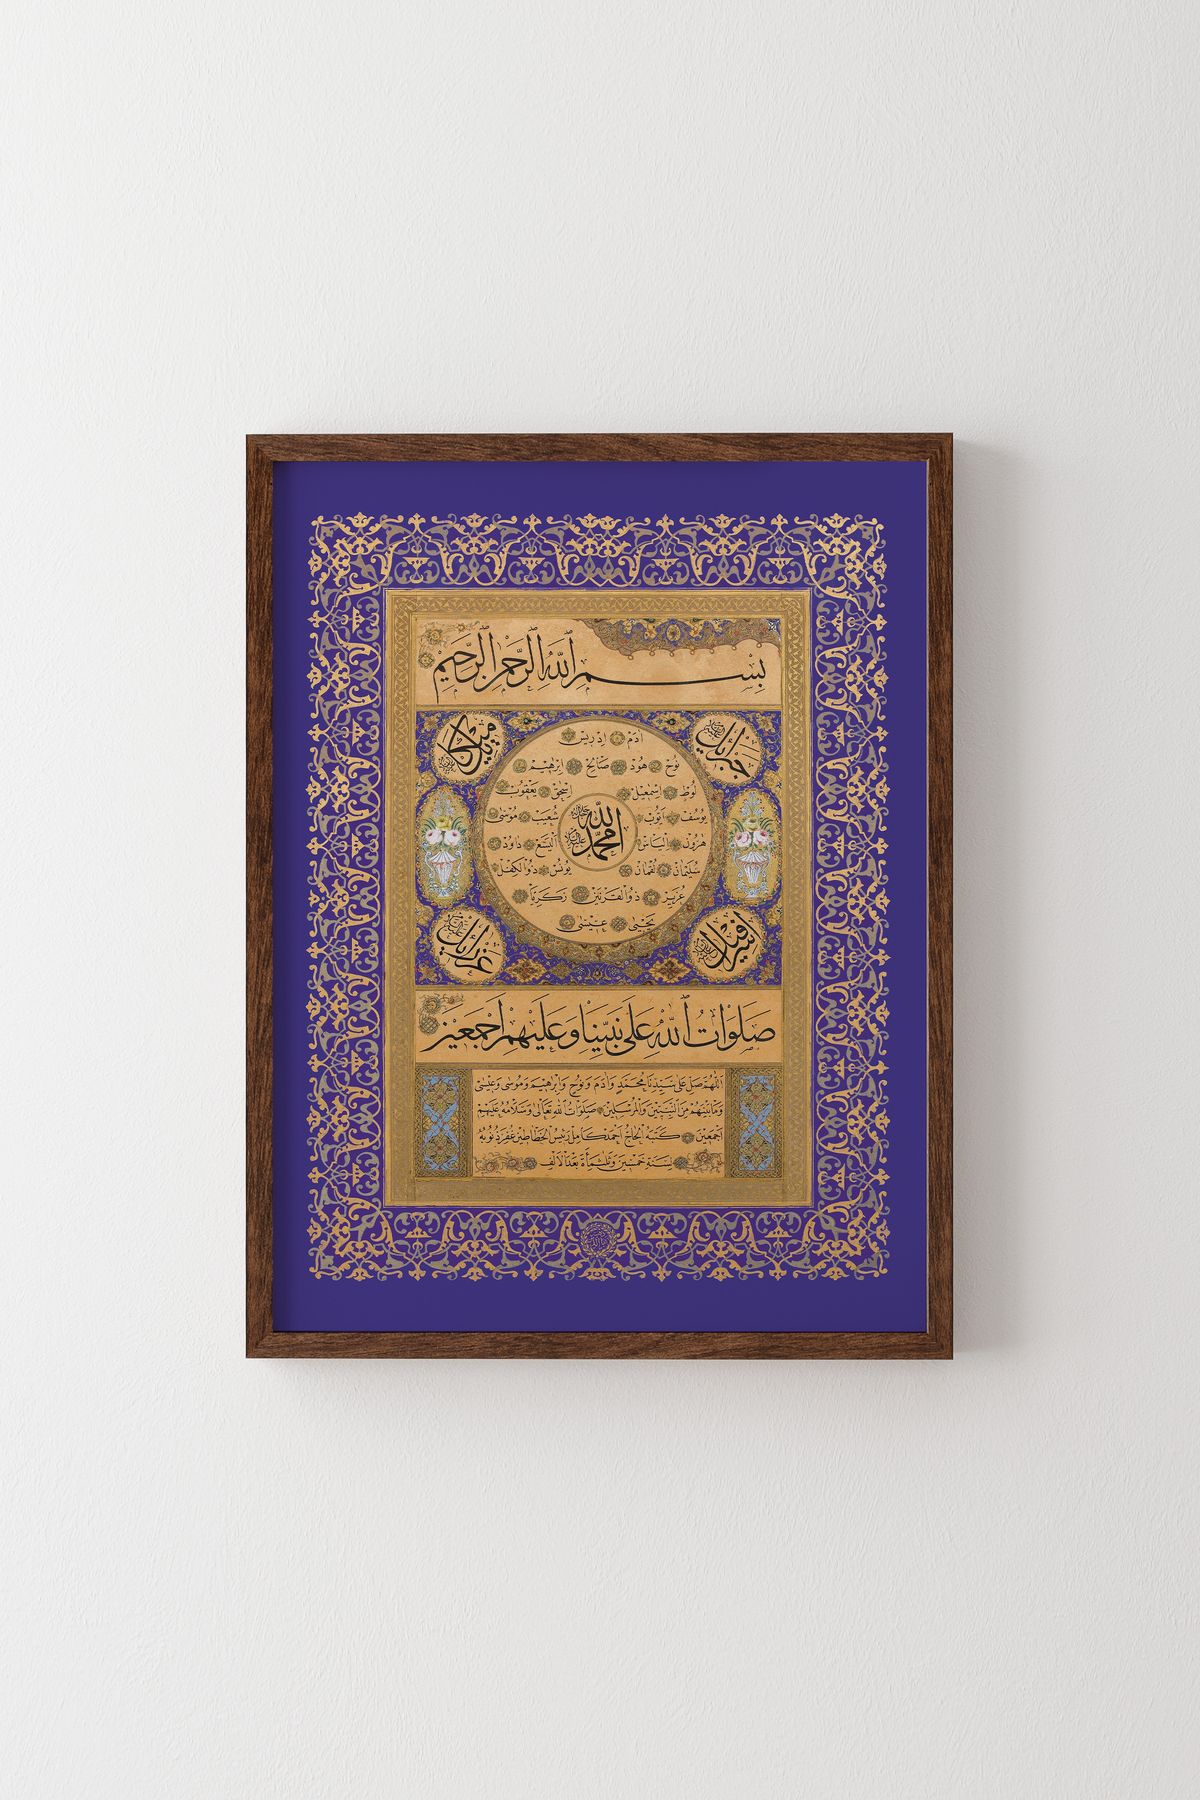 بِسْمِ اللّٰهِ الرَّحْمٰنِ الرَّحِيْمِ
جبرائيل
ميكائيل
اٰدَمْ اِدْرِيسْ
نُوحْ هُودْ صَالِحْ اِبْرٰهِيمْ
لُوطْ اِسْمٰعِيلْ اِسْحٰقْ يَعْقُوبْ
يُوسُفْ اَيُّوبْ شُعَيبْ مُوسٰى
اللّٰه
محمد
هٰرُونْ اِلْيَاسْ اَلْيَسَعْ دَاوُدْ
سُلَيْمَانْ لُقْمَانْ يُونُسْ ذُوالْكِفْلْ
عُزَيرْ ذُوالْقَرْنَيْنْ زَكَرِيَّا
يَحْيٰى عِيسٰى
اسرافيل
عزرائيل
صَلَوَاتُ اللّٰهِ عَلٰى نَبِيِّنَا وَعَلَيْهِمْ اَجْمَعِيْنَ
اَللّٰهُمَّ صَلِّ عَلٰى سَيِّدِنَا مُحَمَّدٍ وَاٰدَمَ وَنُوحٍ وَاِبْرٰهِيمَ وَمُوسٰى وَعِيسٰى
وَمَابَيْنَهُمْ مِنَ النَّبِيِّينَ وَالْمُرْسَلِينَ صَلَوَاتُ اللّٰهِ تَعَالٰى وَسَلَامُهُ عَلَيْهِمْ
اَجْمَعِينَ كَتَبَهُ الْحَاجُّ اَحْمَدُ كَامِلْ رَئِيسُ الْخَطَّاطِينَ غُفِرَ ذُنُوبُهُ
لِسَنَةِ خَمْسِينَ وَثَلٰثُمِأَةٍ بَعْدَ الْاَلْفِ